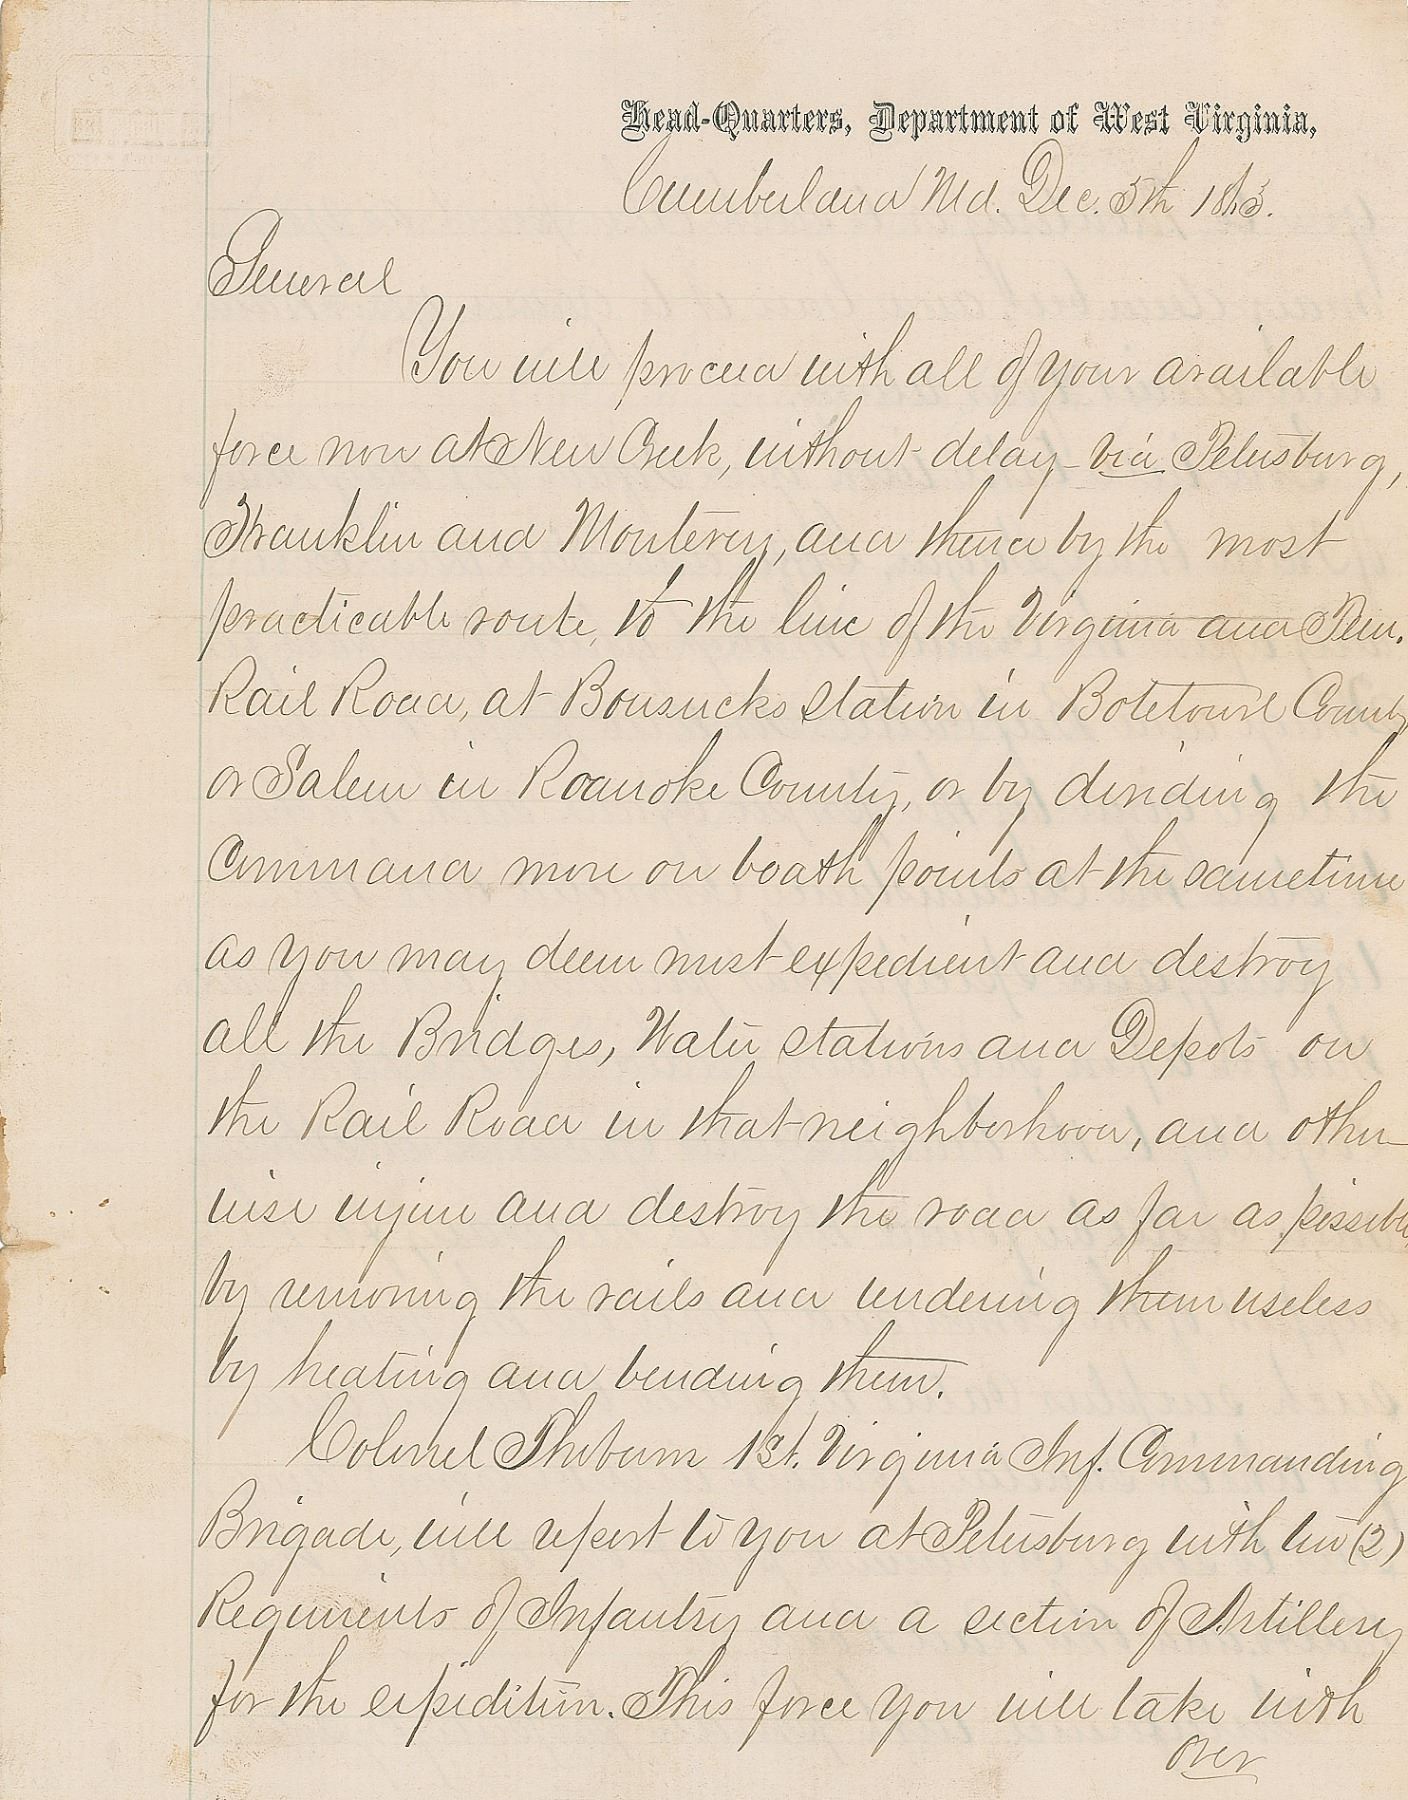 Head-Quarters, Department of West Virginia,
Cumberland Md. Dec. 5th 1863.
General
You will proceed with all of your available
force now at New Creek, without delay via Petersburg,
Franklin and Monterey, and thence by the most
practicable route, to the line of the Virginia and Tenn.
Rail Road, at Bonsucks Station in Botetourt County
or Salem in Roanoke County, or by dividing the
Command move on boath points at the sametime
as you may deem most expedient and destroy
all the Bridges, Water Stations and Depots on
the Rail Road in that neighborhood, and other-
wise injure and destroy the road as far as possible
by removing the rails and rendering them useless
by heating and bending them.
Colonel Thoburn 1st. Virginia Inf. Commanding
Brigade, will report to you at Petersburg with two (2)
Regiments of Infantry and a section of Artillery
for the expedition. This force you will take with
over